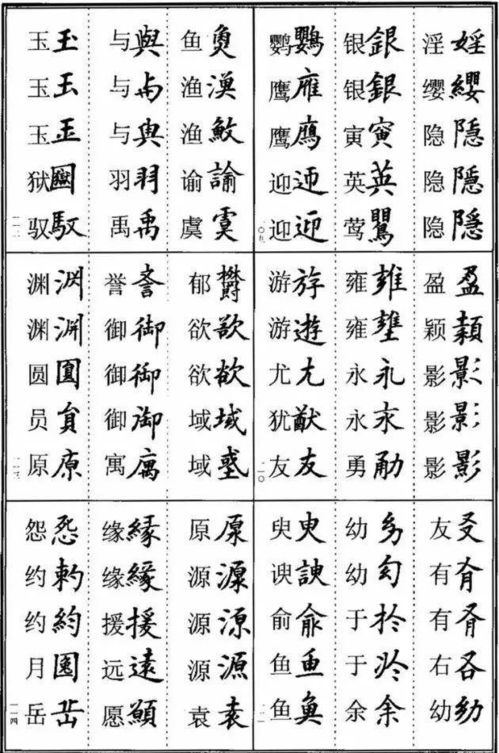 淫婬 缨纓 隐隱 隐隱 隐隱
银銀 银銀 寅寅 英英 莺鸎
鹦鸚 鹰鴈 鹰鷹 迎迎 迎迎
一〇九
盈盈 颖頴 影影 影影 影影
雍雍 雍壅 永永 永永 勇勈
游斿 游遊 尤尤 犹猷 友友
一一〇
友 有有 有有 右右 幼幼
幼 幼 于於 于 余余
臾臾 谀諛 俞俞 鱼魚 鱼魚
一一一
鱼魚 渔漁 渔 谕諭 虞虞
与與 与与 与與 羽羽 禹禹
玉玉 玉玉 玉玉 狱 驭馭
一一二
郁欝 欲欲 欲欲 域域 域
誉 御御 御御 御御 寓庽
渊渊 渊渊 圆圓 员貟 原原
一一三
原原 源源 源源 源源 袁袁
缘緣 缘緣 援援 远遠 愿顯
怨 约 约約 月 岳岳
一一四